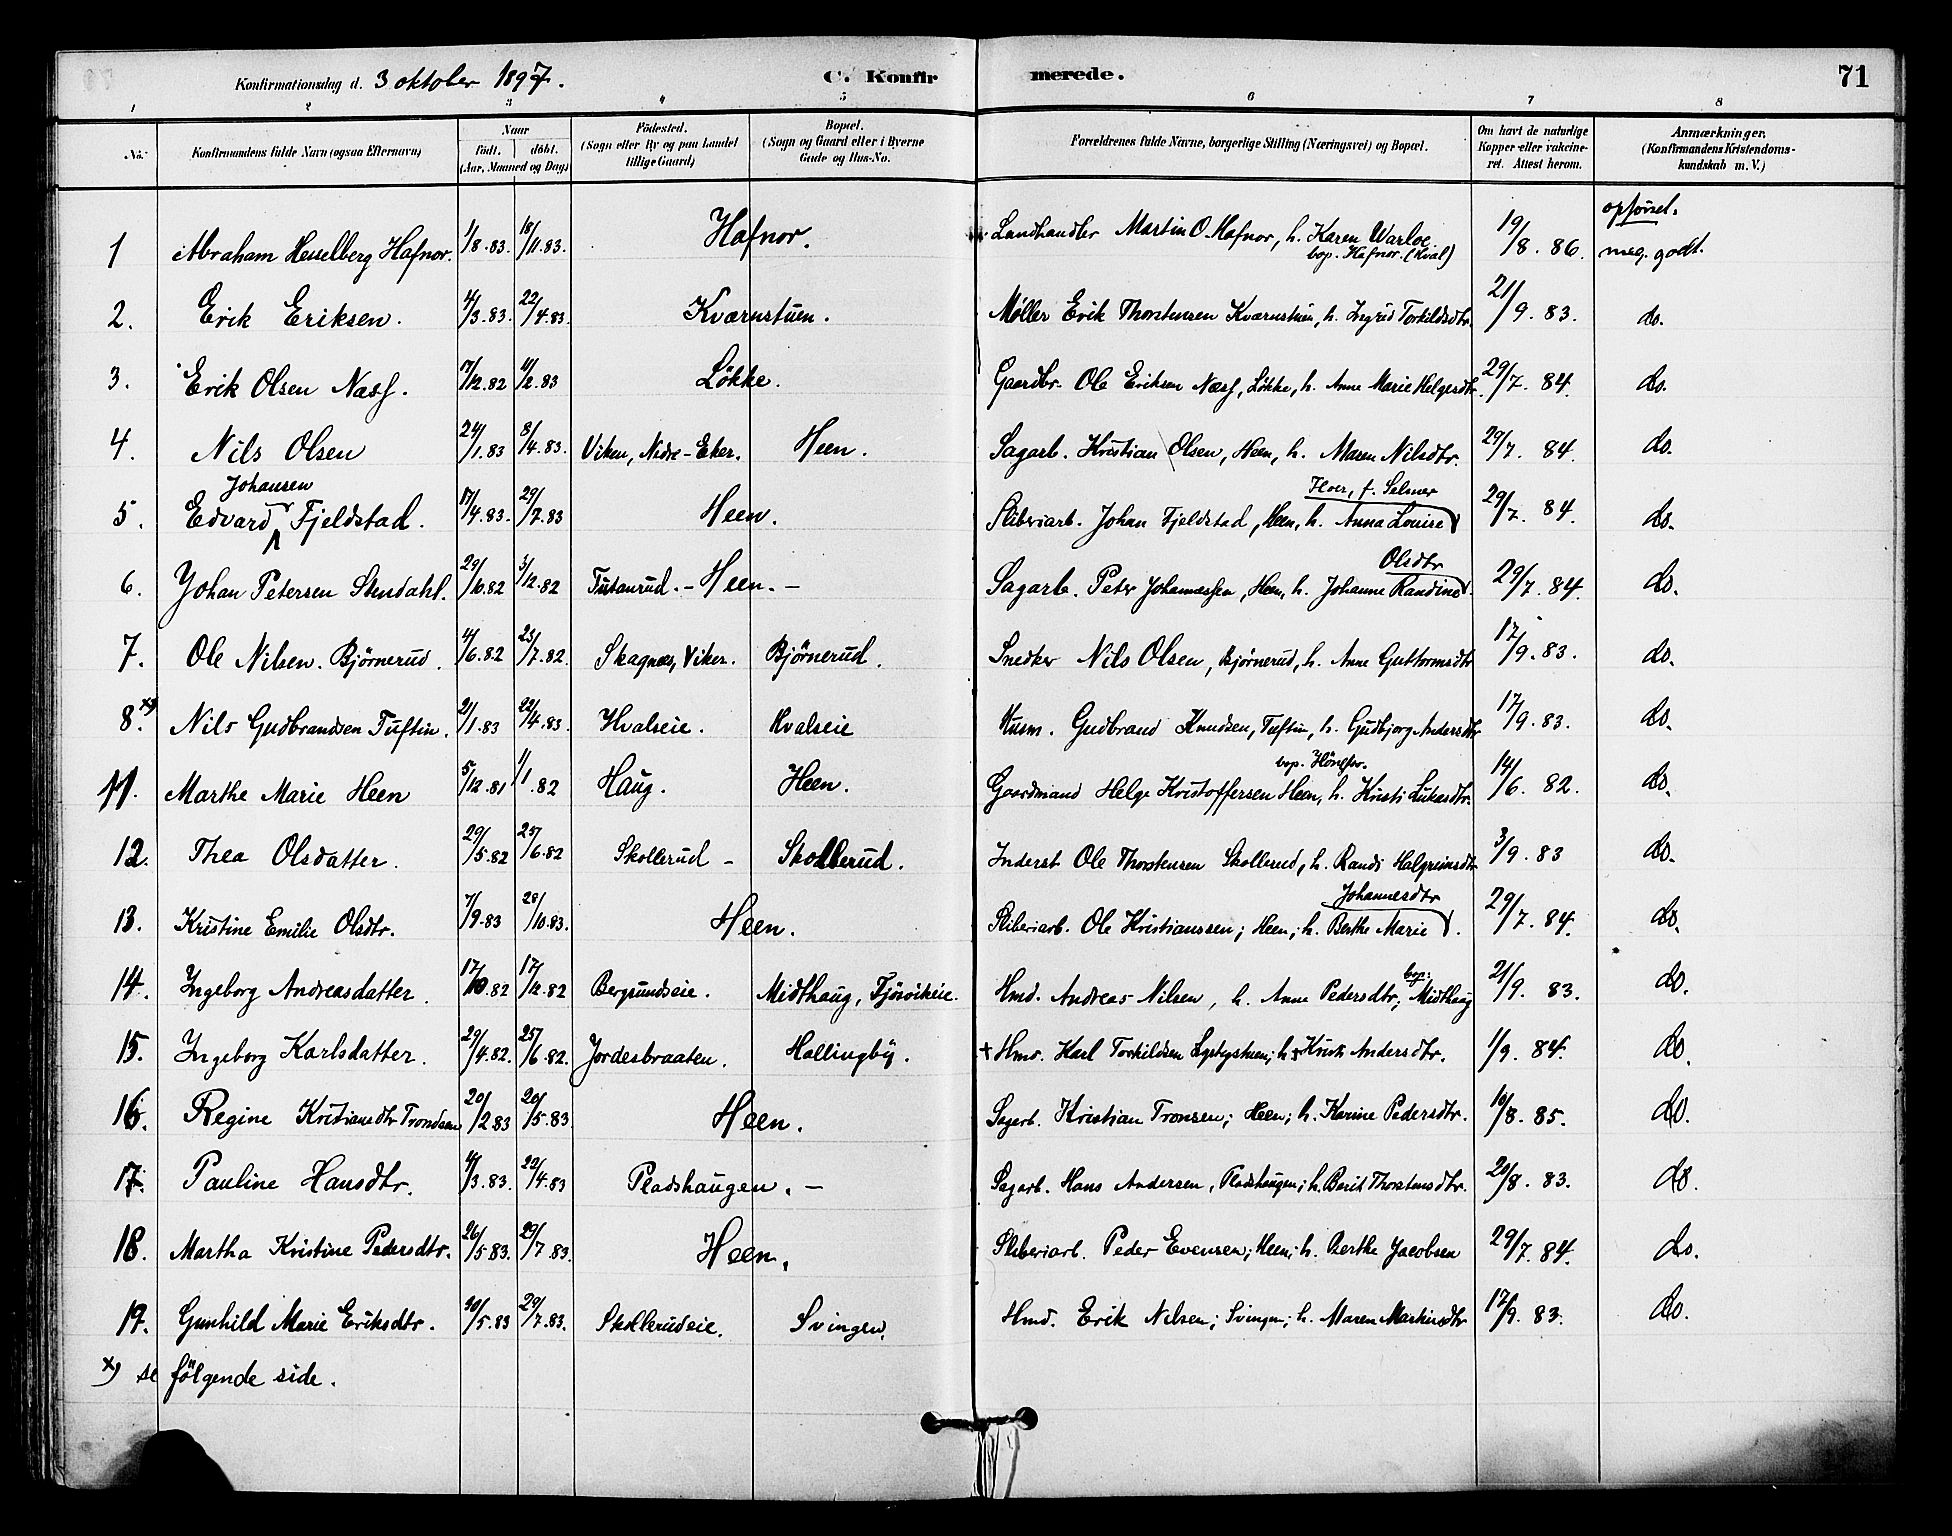 Konfirmationsdag d. 3 oktober 1897. C. Konfirmerede. 71
1 2 3 4 5 6 7 8
No. Konfirmandens fulde Navn (ogsaa Efternavn) Naar født. døbt. (Aar, Maaned og Dag) Fødested. (Sogn eller By og paa Landet tillige Gaard) Bopæl. (Sogn og Gaard eller i Byerne Gade og Hus-No. Forældrenes fulde Navne, borgerlige Stilling (Næringsvei) og Bopæl. Om havt de naturlige Kopper eller vakcineret. Attest herom. Anmærkninger. (Konfirmandens Kristendomskundskab m. V.)
opførsel.
1 Abraham Hesselberg Hafnor. 1/8.83. 18/11.83. Hafnor. Landhandler Martin O. Hafnor, h. Karen Warloe. 19/8.86. meg. godt.
bop. Hafnor. (Hval)
2. Erik Eriksen. 4/3.83. 22/4.83. Kværnstuen. Møller Erik Thorstensen Kværnstuen, h. Ingrid Torkildsdtr. 21/9.83. do.
3. Erik Olsen Næss. 17/12.82 11/2.83 Løkke. Gaardbr. Ole Eriksen Næss, Løkke, h. Anne Marie Helgesdtr. 29/7.84. do.
4. Nils Olsen 24/1.83 8/4.83. Viken, Nedre-Eker. Heen. Sagarb. Kristian Olsen, Heen, h. Maren Nilsdtr. 29/7.84. do.
Johansen f. Selmer
5. Edvard Fjeldstad. 17/4.83. 29/7.83 Heen. Sliberiarb. Johan Fjeldstad, Heen, h. Anna Louise 29/7.84. do.
Olsdtr
6. Johan Petersen Stendahl. 29/10.82 3/12.82 Tustanrud. - Heen. - Sagarb. Peter Johannessen, Heen, h. Johanne Randine 29/7.84. do.
7. Ole Nilsen. Bjørnerud. 4/6.82 23/7.82. Skagnæs, Viker. Bjørnerud. Snedker Nils Olsen, Bjørnerud, h. Anne Guttormsdtr 17/9.83. do.
8. x) Nils Gudbrandsen Tuftin. 21/1.83 22/4.83. Hvalseie. Hvalseie Husm. Gudbrand Knudsen, Tuftin, h. Gudbjorg Andersdtr 17/9.83. do.
bop. Hønefos.
11. Marthe Marie Heen 5/12.81 1/1.82 Haug. Heen. Gaardmand Helge Kristoffersen Heen, h. Kristi Lukasdtr. 14/6.82. do.
12. Thea Olsdatter. 29/5.82 25/6.82 Skollerud - Skollerud. Inderst Ole Thorstensen Skollerud, h. Randi Halgrimsdtr 3/9.83 do.
Johannesdtr
13. Kristine Emilie Olsdtr. 7/9.83 28/10.83. Heen. Sliberiarb. Ole Kristianssen; Heen; h. Berthe Marie. 29/7.84. do.
14. Ingeborg Andreasdatter. 17/10.82 17/12.82 Bergsundseie. Midthaug, Fjøsvikeie. Hmd. Andreas Nilsen, h. Anne Pedersdtr; bop: Midthaug 21/9.83. do.
15. Ingeborg Karlsdatter. 29/4.82. 25/6.82. Jordesbraaten. Hallingby. + Hmd. Karl Torkildsen h. + Kristi Andersdtr. 1/9.84. do.
16. Regine Kristiansdtr Trondsen 20/2.83 20/5.83 Heen. Sagarb. Kristian Tronsen; Heen; h. Karine Pedersdtr. 10/8.85. do.
17. Pauline Hansdtr. 4/3.83. 22/4.83 Pladshaugen. - Sagarb. Hans Andersen, Pladshaugen; h. Berit Thorstensdtr. 20/8.83. do.
18. Martha Kristine Pedersdtr. 26/5.83. 29/7.83. Heen. Sliberiarb. Peder Evensen; Heen; h. Berthe Jacobsen 29/7.84. do.
19. Gunhild Marie Eriksdtr. 30/5.83 29/7.83. Skollerudeie. Svingen. Hmd. Erik Nilsen; Svingen; h. Maren Martinsdtr 17/9.83. do.
x) se følgende side.